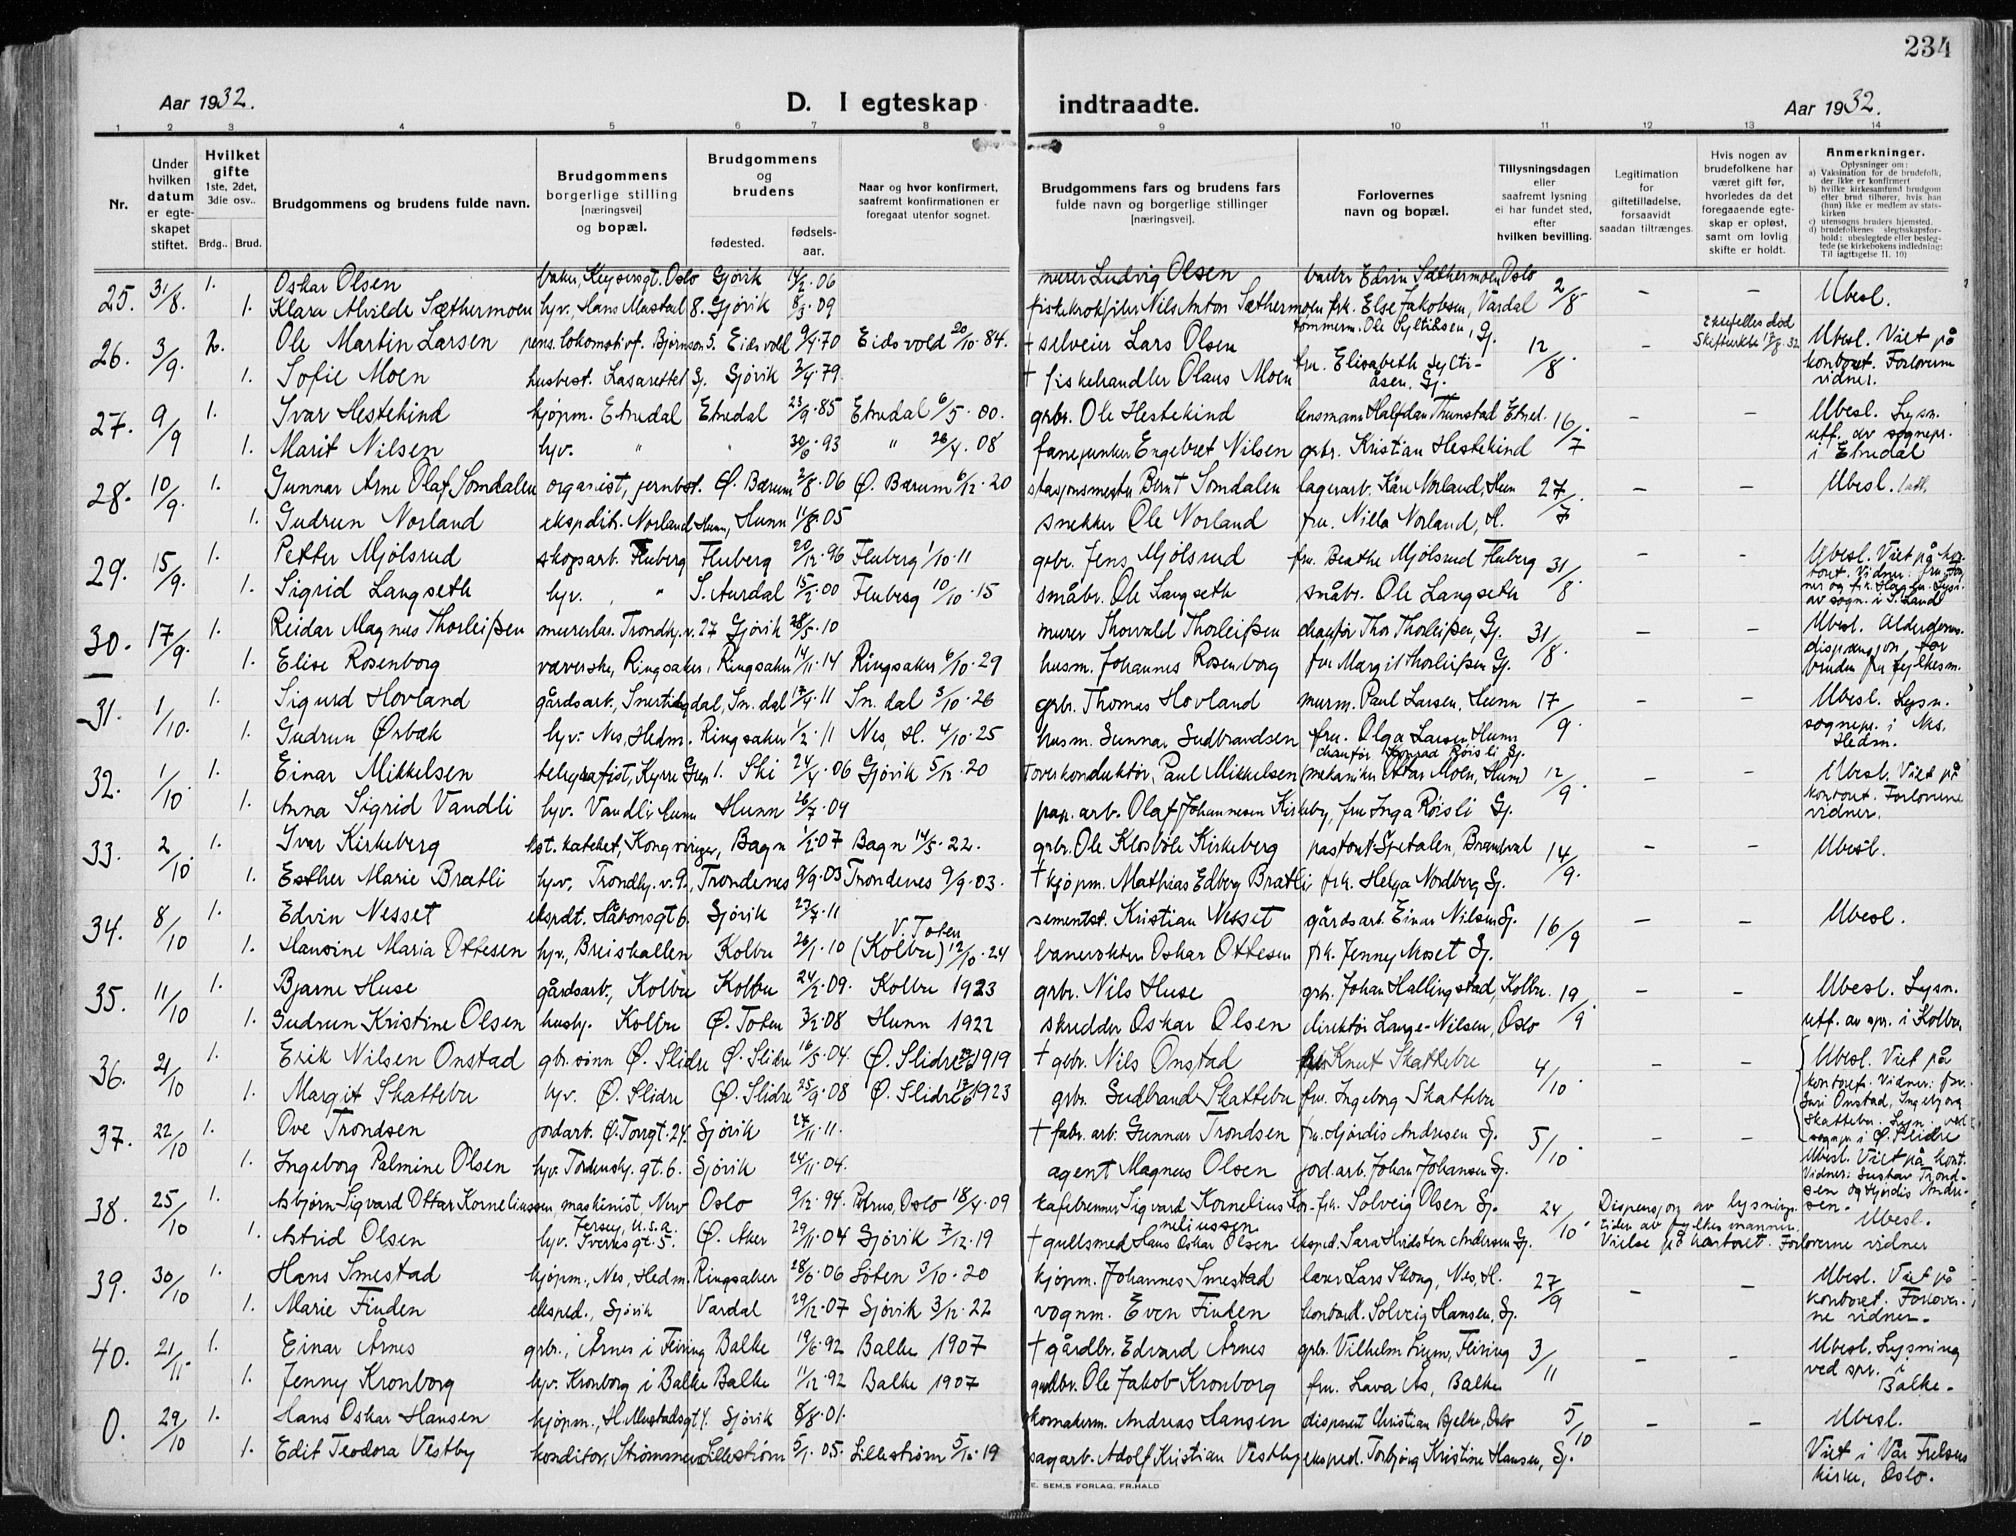 234
Aar 1932. D. I egteskap indtraadte. Aar 1932.
1 2 3 4 5 6 7 8 9 10 11 12 13 14
Nr.
Under hvilken datum er egteskapet stiftet.
Hvilket gifte 1ste, 2det, 3die osv..
Brdg.. Brud.
Brudgommens og brudens fulde navn.
Brudgommens borgerlige stilling [næringsvei] og bopæl.
Brudgommens og brudens
fødested. fødsels-aar.
Naar og hvor konfirmert, saafremt konfirmationen er foregaat utenfor sognet.
Brudgommens fars og brudens fars fulde navn og borgerlige stillinger [næringsvei].
Forlovernes navn og bopæl.
Tillysningsdagen eller saafremt lysning ei har fundet sted, efter hvilken bevilling.
Legitimation for giftetilladelse, forsaavidt saadan tiltrænges.
Hvis nogen av brudefolkene har været gift før, hvorledes da det foregaaende egteskap er opløst, samt om lovlig skifte er holdt.
Anmerkninger.
Oplysninger om:
a) Vaksination for de brudefolk, der ikke er konfirmert
b) hvilke kirkesamfund brudgom eller brud tilhører, hvis han (hun) ikke er medlem av statskirken
c) utensogns bruders hjemsted.
d) brudefolkenes slegtsskapsforhold: ubeslegtede eller beslegtede (se kirkebokens indledning: Til iagttagelse 11. 10)
25. 31/8. 1. Oskar Olsen baker, Keysersgt. Oslo Gjøvik 14/2.06 murer Ludvig Olsen Edvin Sæthermoen Oslo 2/8 – – Ubesl.
1. Klara Alvilde Sæthermoen hjv. Hans Mustad 8. Gjøvik 8/3.09 Nils Anton Sæthermoen frk. Else Jakobsen, Vardal
26. 3/9. 2. Ole Martin Larsen pens. lokomotivf. Bjørnson 5. Eidsvold 9/4.70 Eidsvold 20/10.84. † selveier Lars Olsen tømmerm. Ole Sylliåsen, Gj. 12/8. – Ektefelles død Ubesl. Viet på
1. Sofie Moen husbest. Lasarettet Gj. Gjøvik 3/4.79. † fiskehandler Olaus Moen fru. Elisabeth Sylliåsen, Gj. kontoret. Forloverne vidner.
27. 9/9 1. Ivar Hestekind kjøpm. Etnedal Etnedal 23/9.85 Etnedal 6/5.00. grbr. Ole Hestekind lensmann Halfdan Thunstad Etned. 16/7 – – Ubesl. Lysn.
1. Marit Nilsen hjv. " " 30/6.93 " 26/4.08 fanejunker Engebret Nilsen grbr. Kristian Hestekind utf. av sognepr. i Etnedal
28. 10/9. 1. Gunnar Arne Olaf Somdalen organist, jernbst. Ø. Bærum 2/8.06 Ø. Bærum 6/12.20 stasjonsmester Bernt Somdalen lagerarb. Kåre Norland, Hunn 27/7 – – Ubesl.
1. Gudrun Norland ekspditr. Norland Hunn, Hunn 11/8.05 snekker Ole Norland fru. Niela Norland, H.
29. 15/9. 1. Petter Mjølsrud skogsarb. Fluberg Fluberg 20/12.96 Fluberg 1/10.11 grbr. Jens Mjølsrud fru Beathe Mjølsrud Fluberg 31/8 – – Ubesl. Viet på kon-
1. Sigrid Langseth hjv. " S. Aurdal 15/2.00 Fluberg 10/10.15 småbr. Ole Langseth småbr. Ole Langseth toret. Vidner: av sogn. i S. Land
30. 17/9. 1. Reidar Magnus Thorleifsen murerlær. Trondhj.v. 27 Gjøvik 28/5.10 murer Thorvald Thorleifsen chauffør Thor Thorleifsen, Gj. 31/8. – – Ubesl. Alders-
1. Elise Rosenborg væverske, Ringsaker, Ringsaker 14/11.14 Ringsaker 6/10.29 husm. Johannes Rosenborg fru Margit Thorleifsen Gj. dispensjon for bruden fra fylkesm.
31. 1/10. 1. Sigurd Hovland gårdsarb., Snertingdal, Sn. dal 17/4.11 Sn. dal 3/10.26 grbr. Thomas Hovland murm. Paul Larsen, Hunn 17/9 – – Ubesl. Lysn.
1. Gudrun Ørbæk hjv. Nes, Hedm. Ringsaker 1/2.11 Nes, H. 4/10.25 husm. Gunnar Gudbrandsen fru. Olga Larsen Hunn sognepr. i Nes, Hedm.
32. 1/10 1. Einar Mikkelsen telegrafist, Kyrre Grep 1. Ski 24/4.06 Gjøvik 5/12.20 overkonduktør, Paul Mikkelsen chauffør Konrad Røisli Gj. (mekaniker Ottar Moen, Hunn) 12/9. – – Ubesl. Viet på
1. Anna Sigrid Vandli hjv. Vandli Hunn Hunn 26/7.04 pap.arb. Olaf Johannesen Kirkeby, fru Inga Røisli Gj. kontoret. Forloverne vidner.
33. 2/10 1. Iver Kirkeberg kst. kateket, Kongsvinger, Bagn 1/2.07 Bagn 14/5.22. grbr. Ole Klosbøle Kirkeberg pastor Spetalen, Brandval 14/9. – – Ubesl.
1. Esther Marie Bratli hjv. Trondhj.v. 9, Trondenes 9/9.03 Trondenes 9/9.03. † kjøpm. Mathias Edberg Bratli frk. Helga Nordberg Gj.
34. 8/10 1. Edvin Nesset ekspdt. Håkonsgt 6. Gjøvik 23/7.11 sementst. Kristian Nesset gårdsarb. Einar Nilsen Gj. 16/9 – – Ubesl.
1. Hansine Maria Ottesen hjv., Breiskallen Kolbu 26/1.10 V. Toten (Kolbu) 12/10.24 banevokter Oskar Ottesen frk. Jenny Moset Gj.
35. 11/10 1. Bjarne Huse gårdsarb., Kolbu Kolbu 24/2.09. Kolbu 1923 grbr. Nils Huse grbr. Johan Hallingstad, Kolbu. 19/9. – – Ubesl. Lysn.
1. Gudrun Kristine Olsen hushj. Kolbu Ø. Toten 3/2.08 Hunn 1922 skredder Oskar Olsen direktør Lange-Nilsen, Oslo utf. av spr. i Kolbu
36. 21/10 1. Erik Nilsen Onstad gbr.sønn Ø. Slidre Ø. Slidre 16/5.04. Ø. Slidre 1919 † gbr. Nils Onstad Knut Skattebu 4/10. – – Ubesl. Viet på
1. Margit Skattebu hjv. Ø. Slidre Ø. Slidre 25/9.08 Ø. Slidre 17/6 1923 grbr. Gudbrand Skattebu fru. Ingeborg Skattebu kontoret. Vidner: fru. Guri Onstad, Ingebjørg Skattebu. Lysn. ved sognepr. i Ø. Slidre
37. 22/10 1. Ove Trondsen jordarb. Ø. Torvgt. 24. Gjøvik 27/11.11. † fabr. arb. Gunnar Trondsen fru. Hjørdis Andresen Gj. 5/10. – – Ubesl. Viet på kont.
1. Ingeborg Palmine Olsen hjv. Tordenskj. gt. 6. Gjøvik 24/11.04. agent Magnus Olsen jord.arb. Johan Johansen Gj. Vidner: Gustav Trondsen og Hjørdis Andresen.
38. 25/10 1. Asbjørn Sigvard Ottar Korneliussen, maskinist, New Jersey, U.S.A. Oslo 9/12.94. Petrus, Oslo 18/4.09 kafebrenner Sigvard Kornelius Korneliussen frk. Solveig Olsen Gj. 24/10. Dispensjon av lysningstiden av fylkesmannen. Ubesl.
1. Astrid Olsen hjv. Iversgt. 5. Ø. Aker 29/11.04 Gjøvik 7/12.19 † gullsmed Hans Oskar Olsen eksped. Sara Hvidsten Andersen Gj. Vielse på kontoret. Forloverne vidner
39. 30/10 1. Hans Smestad kjøpm., Nes, Hedm. Ringsaker 28/6.06 Løten 3/10.20 kjøpm. Johannes Smestad lærer Lars Skong, Nes, H. 27/9 – – Ubesl. Viet på
1. Marie Finden eksped., Gjøvik Vardal 29/12.07 Gjøvik 3/12.22 vognm. Even Finden kontord. Solveig Hansen, Gj. kontoret. Forloverne vidner.
40. 21/11. 1. Einar Årnes grbr., Årnes i Feiring Balke 19/6.92 Balke 1907 † gårdbr. Edvard Årnes grbr. Vilhelm Lum, Feiring 3/11 – – Ubesl. Lysning
1. Jenny Kronborg hjv. Kronborg i Balke Balke 11/12.92 Balke 1907 gårdbr. Ole Jakob Kronborg fru. Lava Ås, Balke ved spr. i Balke.
0. 29/10 1. Hans Oskar Hansen kjøpm., H. Mustadsgt 4. Gjøvik 8/8.01. skomakerm. Andreas Hansen disponent Christian Bjelke, Oslo 5/10 – – Ubesl.
1. Edit Teodora Vestby konditor, Strømmen Lillestrøm 5/1.05. Lillestrøm 5/10.19 sagarb. Adolf Kristian Vestby eksped. Torbjørg Kristine Hansen, Gj. Viet i Vår Frelsers kirke, Oslo.
E. SEM.S FORLAG, FR.HALD